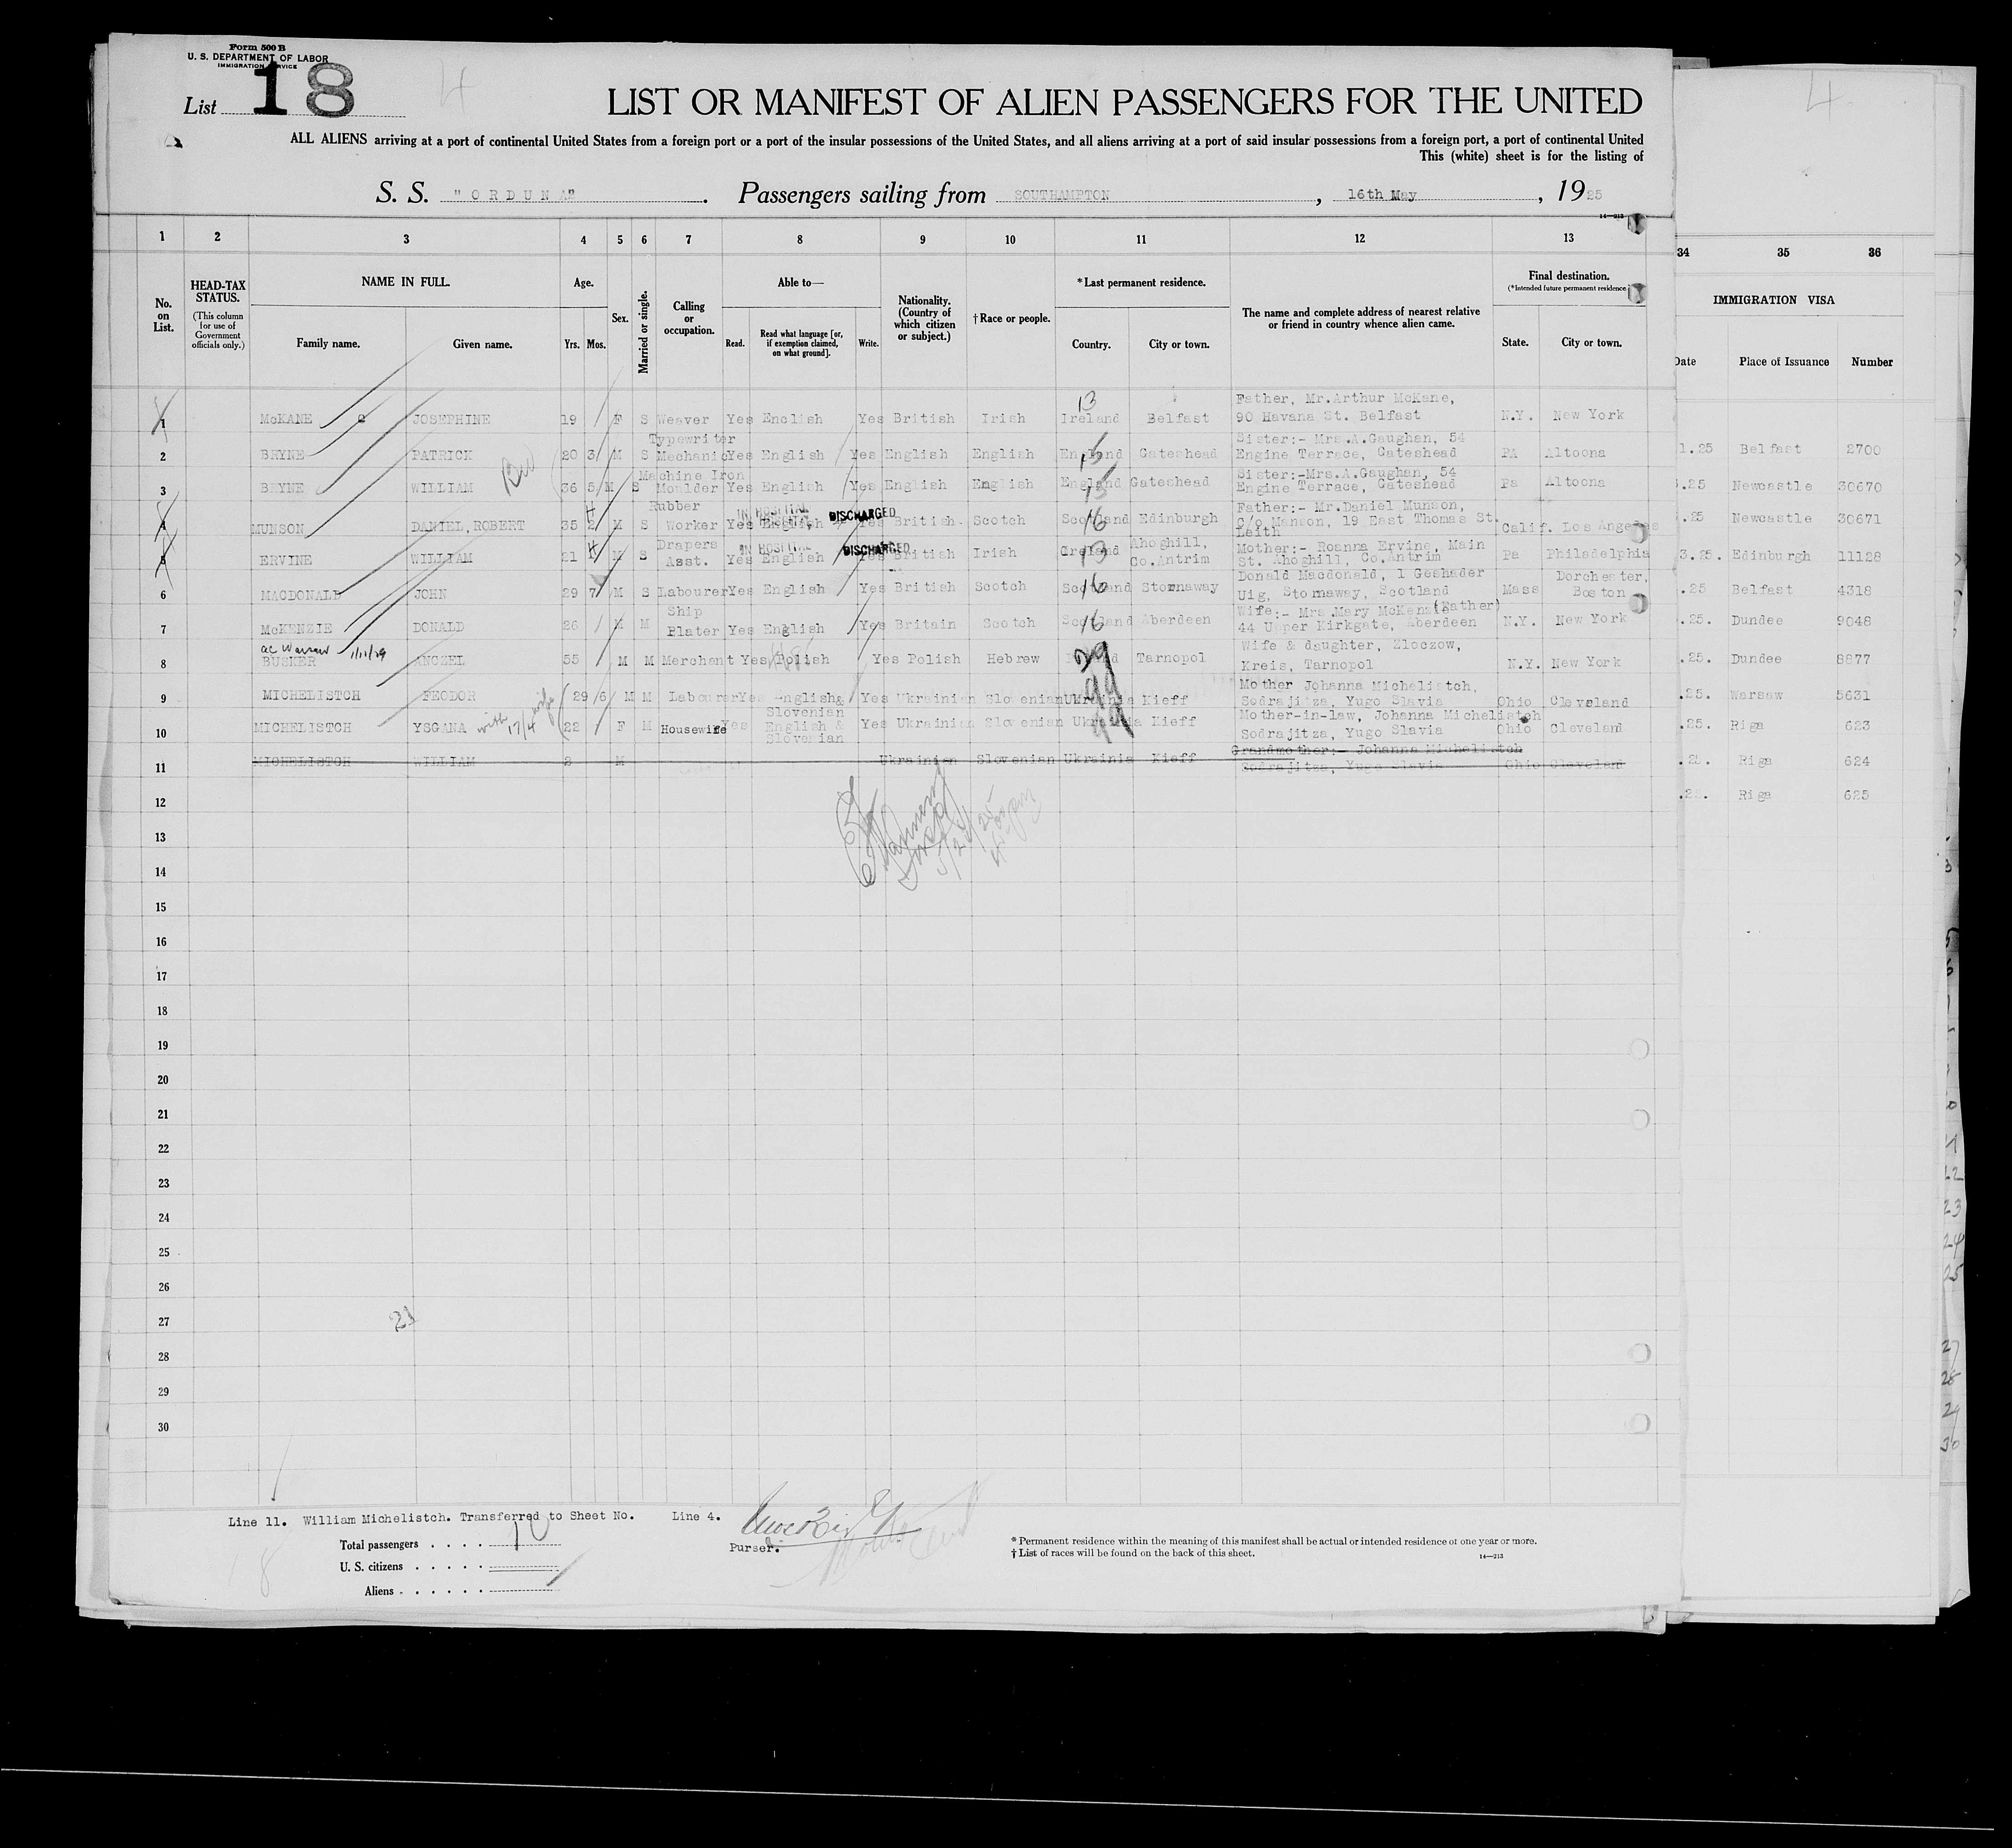 Form 500 B
U. S. DEPARTMENT OF LABOR
IMMIGRATION SERVICE
List 18
4
LIST OR MANIFEST OF ALIEN PASSENGERS FOR THE UNITED
ALL ALIENS arriving at a port of continental United States from a foreign port or a port of the insular possessions of the United States, and all aliens arriving at a port of said insular possessions from a foreign port, a port of continental United
This (white) sheet is for the listing of
S. S. "ORDUNA" . Passengers sailing from SOUTHAMPTON , 16th May , 1925
14—213
1 2 3 4 5 6 7 8 9 10 11 12 13
No. on List.
HEAD-TAX STATUS.
(This column for use of Government officials only.)
NAME IN FULL.
Family name. Given name.
Age.
Yrs. Mos.
Sex.
Married or single.
Calling or occupation.
Able to—
Read. Read what language [or, if exemption claimed, on what ground]. Write.
Nationality. (Country of which citizen or subject.)
† Race or people.
* Last permanent residence.
Country. City or town.
The name and complete address of nearest relative or friend in country whence alien came.
Final destination.
(* Intended future permanent residence
State. City or town.
34 35 36
IMMIGRATION VISA
Date Place of Issuance Number
13
Father, Mr.Arthur McKane,
1 McKANE C JOSEPHINE 19 F S Weaver Yes English Yes British Irish Ireland Belfast 90 Havana St. Belfast N.Y. New York
Typewriter Sister:- Mrs.A.Gaughan, 54
2 BRYNE PATRICK 20 3 M S Mechanic Yes English Yes English English England Gateshead Engine Terrace, Gateshead PA Altoona
Machine Iron Sister:-Mrs.A.Gaughan, 54
3 BRYNE WILLIAM 36 5 M S Moulder Yes English Yes English English England Gateshead Engine Terrace, Gateshead Pa Altoona
Rubber IN HOSPITAL DISCHARGED Father:- Mr.Daniel Munson,
4 MUNSON DANIEL,ROBERT 35 2 M S Worker Yes English Yes British Scotch Scotland Edinburgh C/o Manson, 19 East Thomas St. Leith Calif. Los Angeles
16
Drapers IN HOSPITAL DISCHARGED Ahoghill, Mother:- Roanna Ervine, Main
5 ERVINE WILLIAM 21 M S Asst. Yes English Yes British Irish Ireland Co.Antrim St. Ahoghill, Co.Antrim Pa Philadelphia
13
Donald Macdonald, 1 Geshader Dorchester,
6 MACDONALD JOHN 29 7 M S Labourer Yes English Yes British Scotch Scotland Stornaway Uig, Stornaway, Scotland Mass Boston
16
Ship Wife:- Mrs Mary McKenzie (Father)
7 McKENZIE DONALD 26 M M Plater Yes English Yes Britain Scotch Scotland Aberdeen 44 Upper Kirkgate, Aberdeen N.Y. New York
16
ac Warsaw 1/11/29 Wife & daughter, Zloczow,
8 BUSKER ANCZEL 55 M M Merchant Yes Polish Yes Polish Hebrew Tarnopol Kreis, Tarnopol N.Y. New York
29
Mother Johanna Michelistch,
9 MICHELISTCH FEODOR 29 6 M M Labourer Yes English& Slovenian Yes Ukrainian Slovenian Ukrainia Kieff Sodrajitza, Yugo Slavia Ohio Cleveland
99
Mother-in-law, Johanna Michelistch
10 MICHELISTCH YSGANA with 17/4 wife 22 F M Housewife Yes English & Slovenian Yes Ukrainian Slovenian Ukrainia Kieff Sodrajitza, Yugo Slavia Ohio Cleveland
99
Grandmother:- Johanna Michelistch
11 MICHELISTCH WILLIAM M Ukrainian Slovenian Ukrainia Kieff Sodrajitza, Yugo Slavia Ohio Cleveland
1.25 Belfast 2700
.25 Newcastle 30670
.25 Newcastle 30671
3.25. Edinburgh 11128
.25 Belfast 4318
.25. Dundee 9048
.25. Dundee 8877
.25. Warsaw 5631
.25. Riga 623
.25. Riga 624
Riga 625
12
13
14
15
16
17
18
19
20
21
22
23
24
25
26
27
28
29
30
Line 11. William Michelistch. Transferred to Sheet No. Line 4.
Total passengers . . . . 10
U. S. citizens . . . . .
Aliens . . . . . .
Purser.
* Permanent residence within the meaning of this manifest shall be actual or intended residence of one year or more.
† List of races will be found on the back of this sheet.
14—213